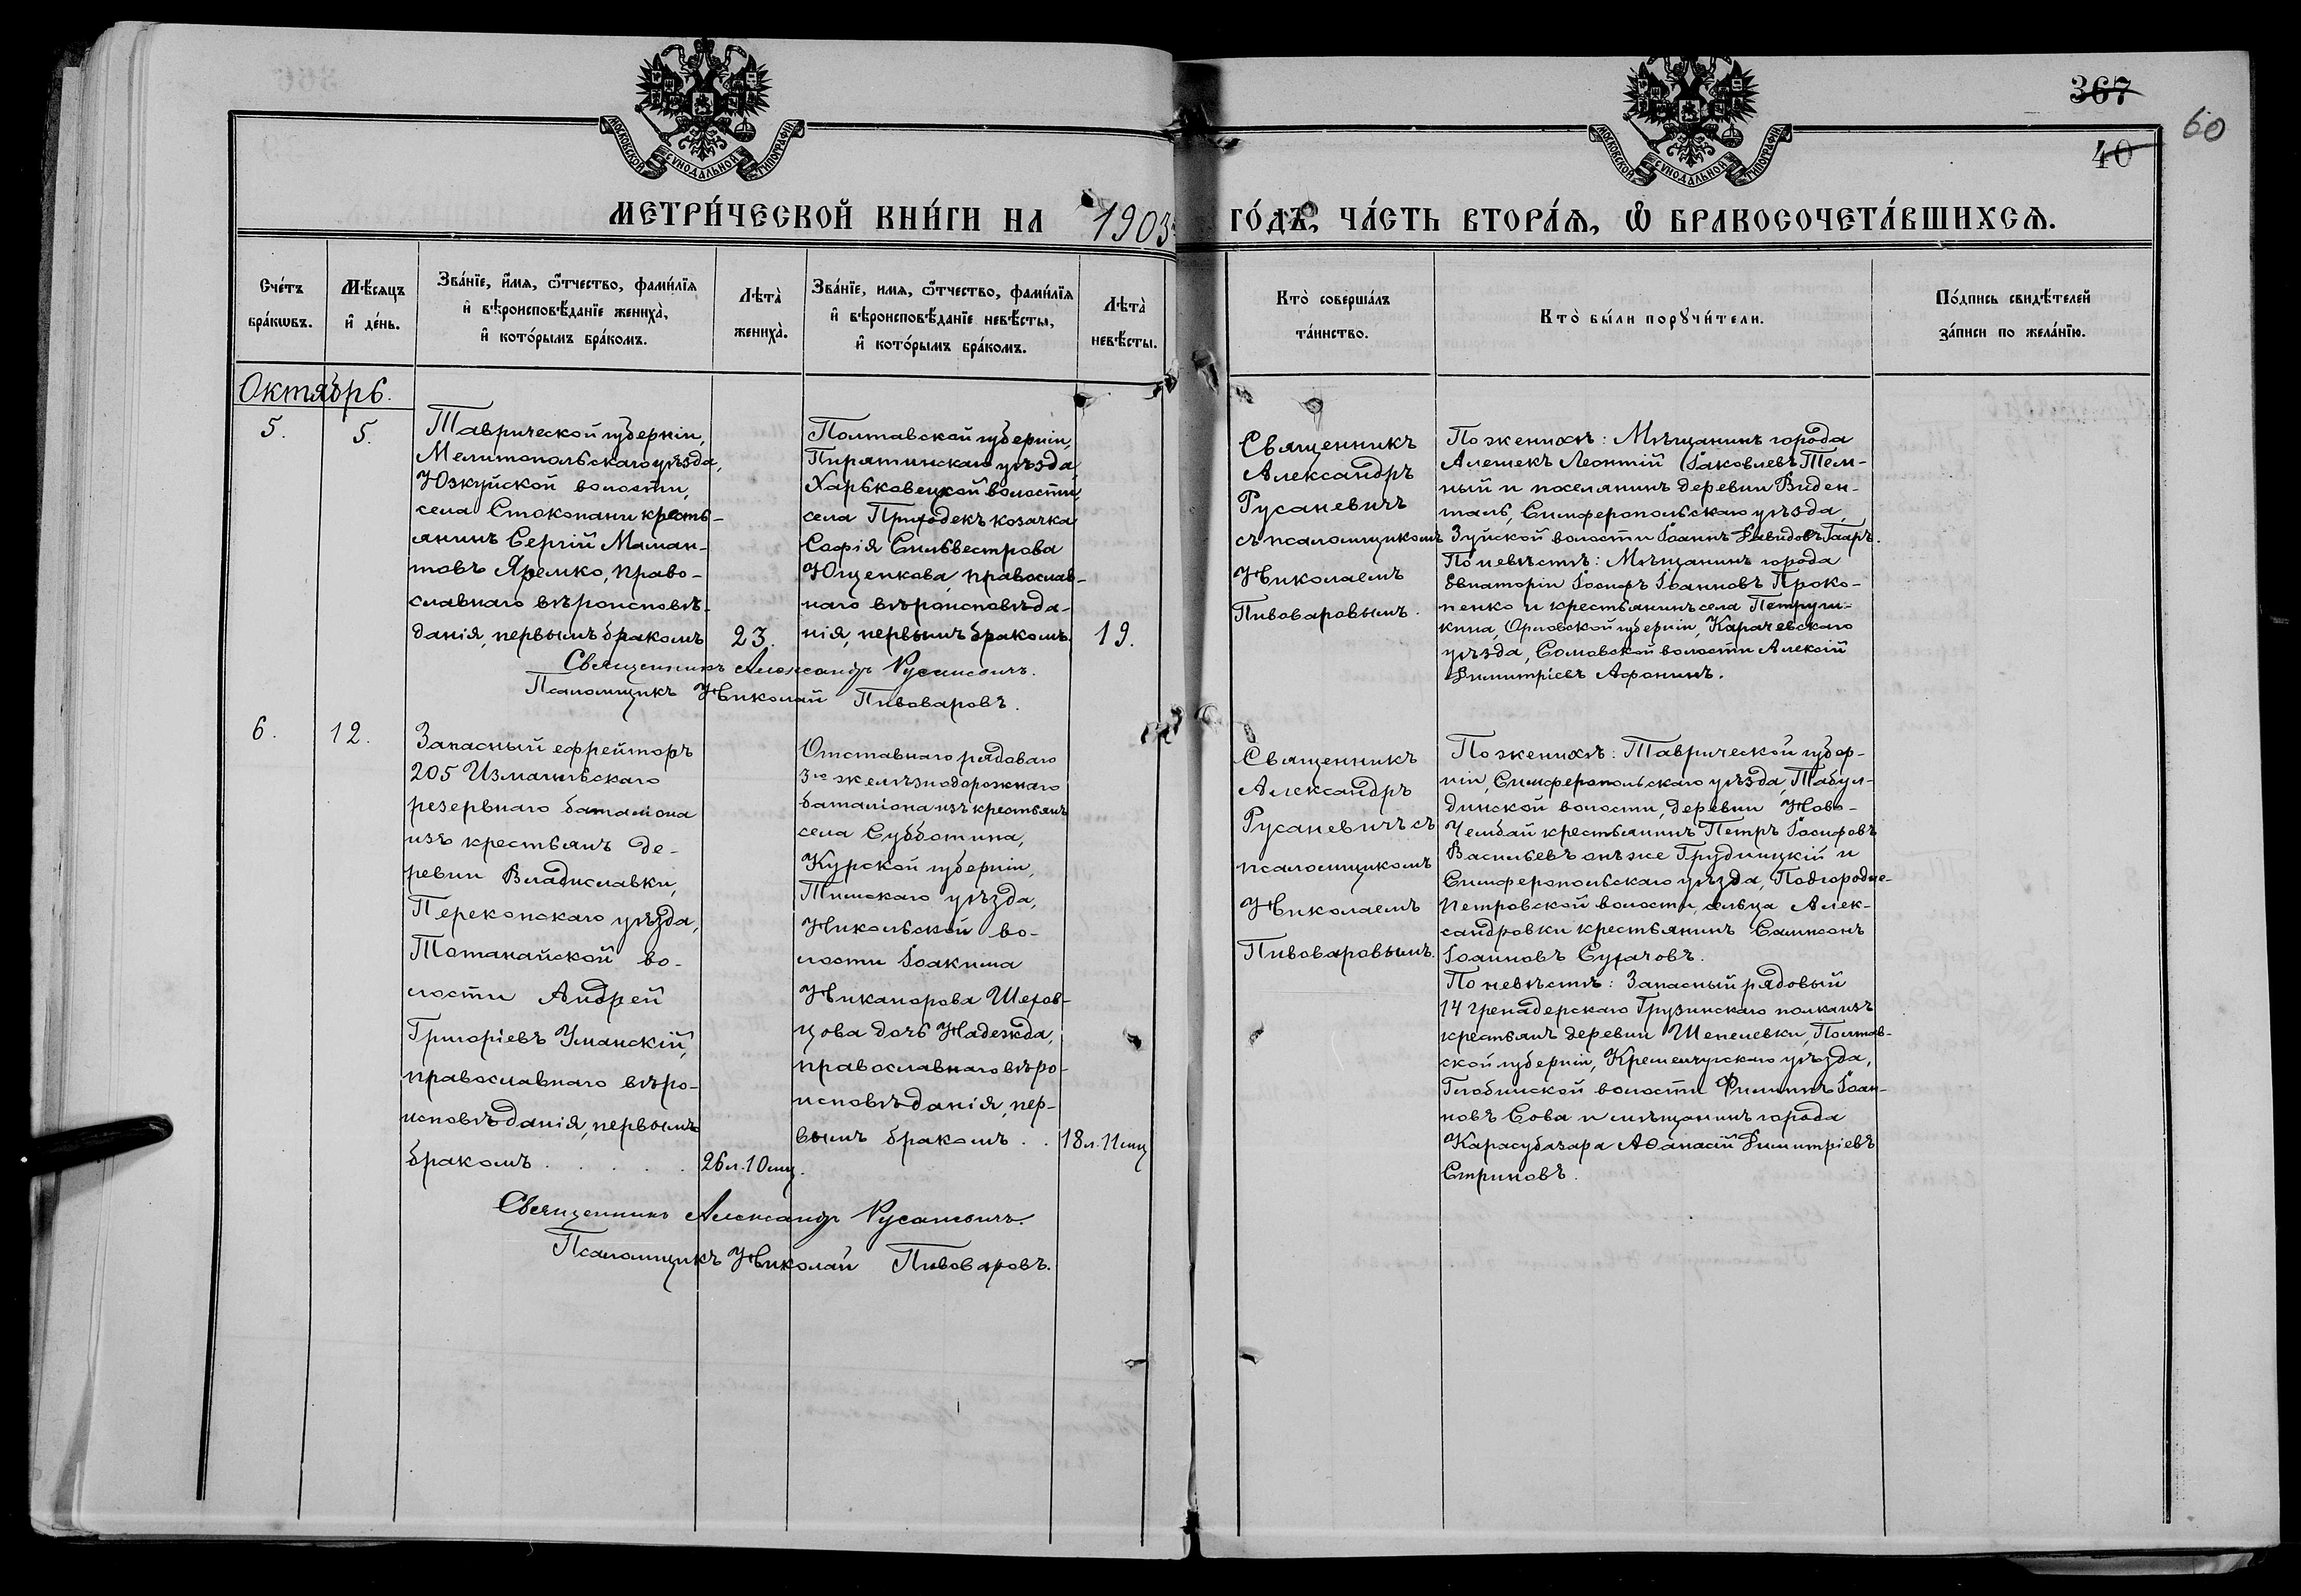 367
60
40
МОСКОВСКОЙ СѴНОДАЛЬНОЙ ТИПОГРАФІИ
МОСКОВСКОЙ СѴНОДАЛЬНОЙ ТИПОГРАФІИ
МЕТРИ́ЧЕСКОЙ КНИ́ГИ НА 1903 ГО́ДЪ, ЧА́СТЬ ВТОРА́Ѧ, Ѡ БРАКОСОЧЕТА́ВШИХСѦ.
Сче́тъ
бра́кѡвъ.
Мѣ́сяцъ
и҆ де́нь.
Зва́нїе, и҆́мя, ѻ҆́тчество, фами́лїя
и҆ вѣроисповѣ́данїе жениха̀,
и҆ кото́рымъ бра́комъ.
Лѣта̀
жениха̀.
Зва́нїе, имя, ѻ҆́тчество, фами́лїя
и҆ вѣроисповѣ́данїе невѣ́сты,
и҆ кото́рымъ бра́комъ.
Лѣта̀
невѣ́сты.
Кто̀ соверша́лъ
та́инство.
Кто̀ бы́ли порꙋчи́тели.
По́дпись свидѣ́телей
за́писи по жела́нїю.
Октябрь.
5.
5.
Таврической губерніи,
Мелитопольскаго уѣзда,
Юзкуйской волости,
села Стокопани кресть-
янинъ Сергій Маман-
товъ Яремко, право-
славнаго вѣроисповѣ-
данія, первымъ бракомъ
23.
Полтавской губерніи,
Пирятинскаго уѣзда
Харьковецкой волости,
села Приходекъ козачка
Софія Сильвестрова
Ющенкова, православ-
наго вѣроисповѣда-
нія, первымъ бракомъ.
19.
Священникъ Александръ Русаневичъ.
Псаломщикъ Николай Пивоваровъ.
Священникъ
Александръ
Русаневичъ
съ псаломщикомъ
Николаемъ
Пивоваровымъ.
По женихѣ: Мѣщанинъ города
Алешекъ Леонтій Іаковлевъ Тем-
ный и поселянинъ деревни Виден-
таль, Симферопольскаго уѣзда,
Зуйской волости Іоаннъ Давидовъ Гааръ.
По невѣстѣ: Мѣщанинъ города
Евпаторіи Іосифъ Іоанновъ Проко-
пенко и крестьянинъ села Петруш-
кина, Орловской губерніи, Карачевскаго
уѣзда, Соловской волости Алексій
Димитріевъ Афонинъ.
6.
12.
Запасный ефрейторъ
205 Измаильскаго
резервнаго баталіона
изъ крестьянъ де-
ревни Владиславки,
Перекопскаго уѣзда,
Тотанайской во-
лости Андрей
Григоріевъ Уманскій,
православнаго вѣро-
исповѣданія, первымъ
бракомъ . . . . .
26 л. 10 мц.
Отставнаго рядоваго
3го желѣзнодорожнаго
баталіона изъ крестьянъ
села Субботина,
Курской губерніи,
Тимскаго уѣзда,
Никольской во-
лости Іоакима
Никанорова Шехов-
цова дочь Надежда,
православнаго вѣро-
исповѣданія, пер-
вымъ бракомъ . .
18 л. 11 мц
Священникъ Александръ Русаневичъ.
Псаломщикъ Николай Пивоваровъ.
Священникъ
Александръ
Русаневичъ съ
псаломщикомъ
Николаемъ
Пивоваровымъ.
По женихѣ: Таврической губер-
ніи, Симферопольскаго уѣзда, Табул-
динской волости, деревни Ново-
Чембай крестьянинъ Петръ Іосифовъ
Васильевъ онъ же Грудницкій и
Симферопольскаго уѣзда, Подгородне-
Петровской волости, сельца Алек-
сандровки крестьянинъ Сампсонъ
Іоанновъ Сухачовъ.
По невѣстѣ: Запасный рядовый
14 гренадерскаго Грузинскаго полка изъ
крестьянъ деревни Шепелевки, Полтав-
ской губерніи, Кременчугскаго уѣзда,
Глобинской волости Филиппъ Іоан-
новъ Сова и мѣщанинъ города
Карасубазара Аѳанасій Димитріевъ
Стриковъ.